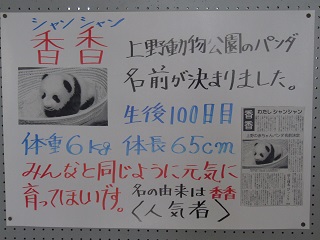 シャンシャン
香香
上野動物公園のパンダ
名前が決まりました。
生後100日目
体重6kg 体長65cm
みんなと同じように元気に
育ってほしいです。
名の由来は香香
〈人気者〉
わたし シャンシャン
香香